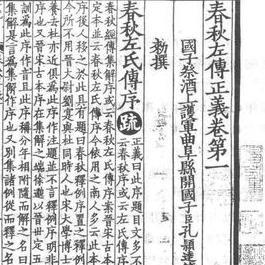 春秋左傳正義卷第一
國子祭酒上護軍曲阜縣開國子臣孔穎達
勑撰
春秋左氏傳序 疏 正義曰此序題目文多不
云春秋序或云左氏傳序
春秋經傳集解序或云春秋左氏傳序案晉宋古本
定本並云春秋左氏傳序今依用之南人多云此本
序後人移之於此且有題曰春秋釋例序置之釋例
今所不用晉大尉劉寔與杜同時人也宋大學博士
養去杜亦近俱為此序作注題並不言釋例序明非
序也又晉宋古本序在集解之端徐邈以晉世定五
訓為此序作音且此序稱分年相附隨而解之名曰
集解是言為集解作序也又別集諸例從而釋之名